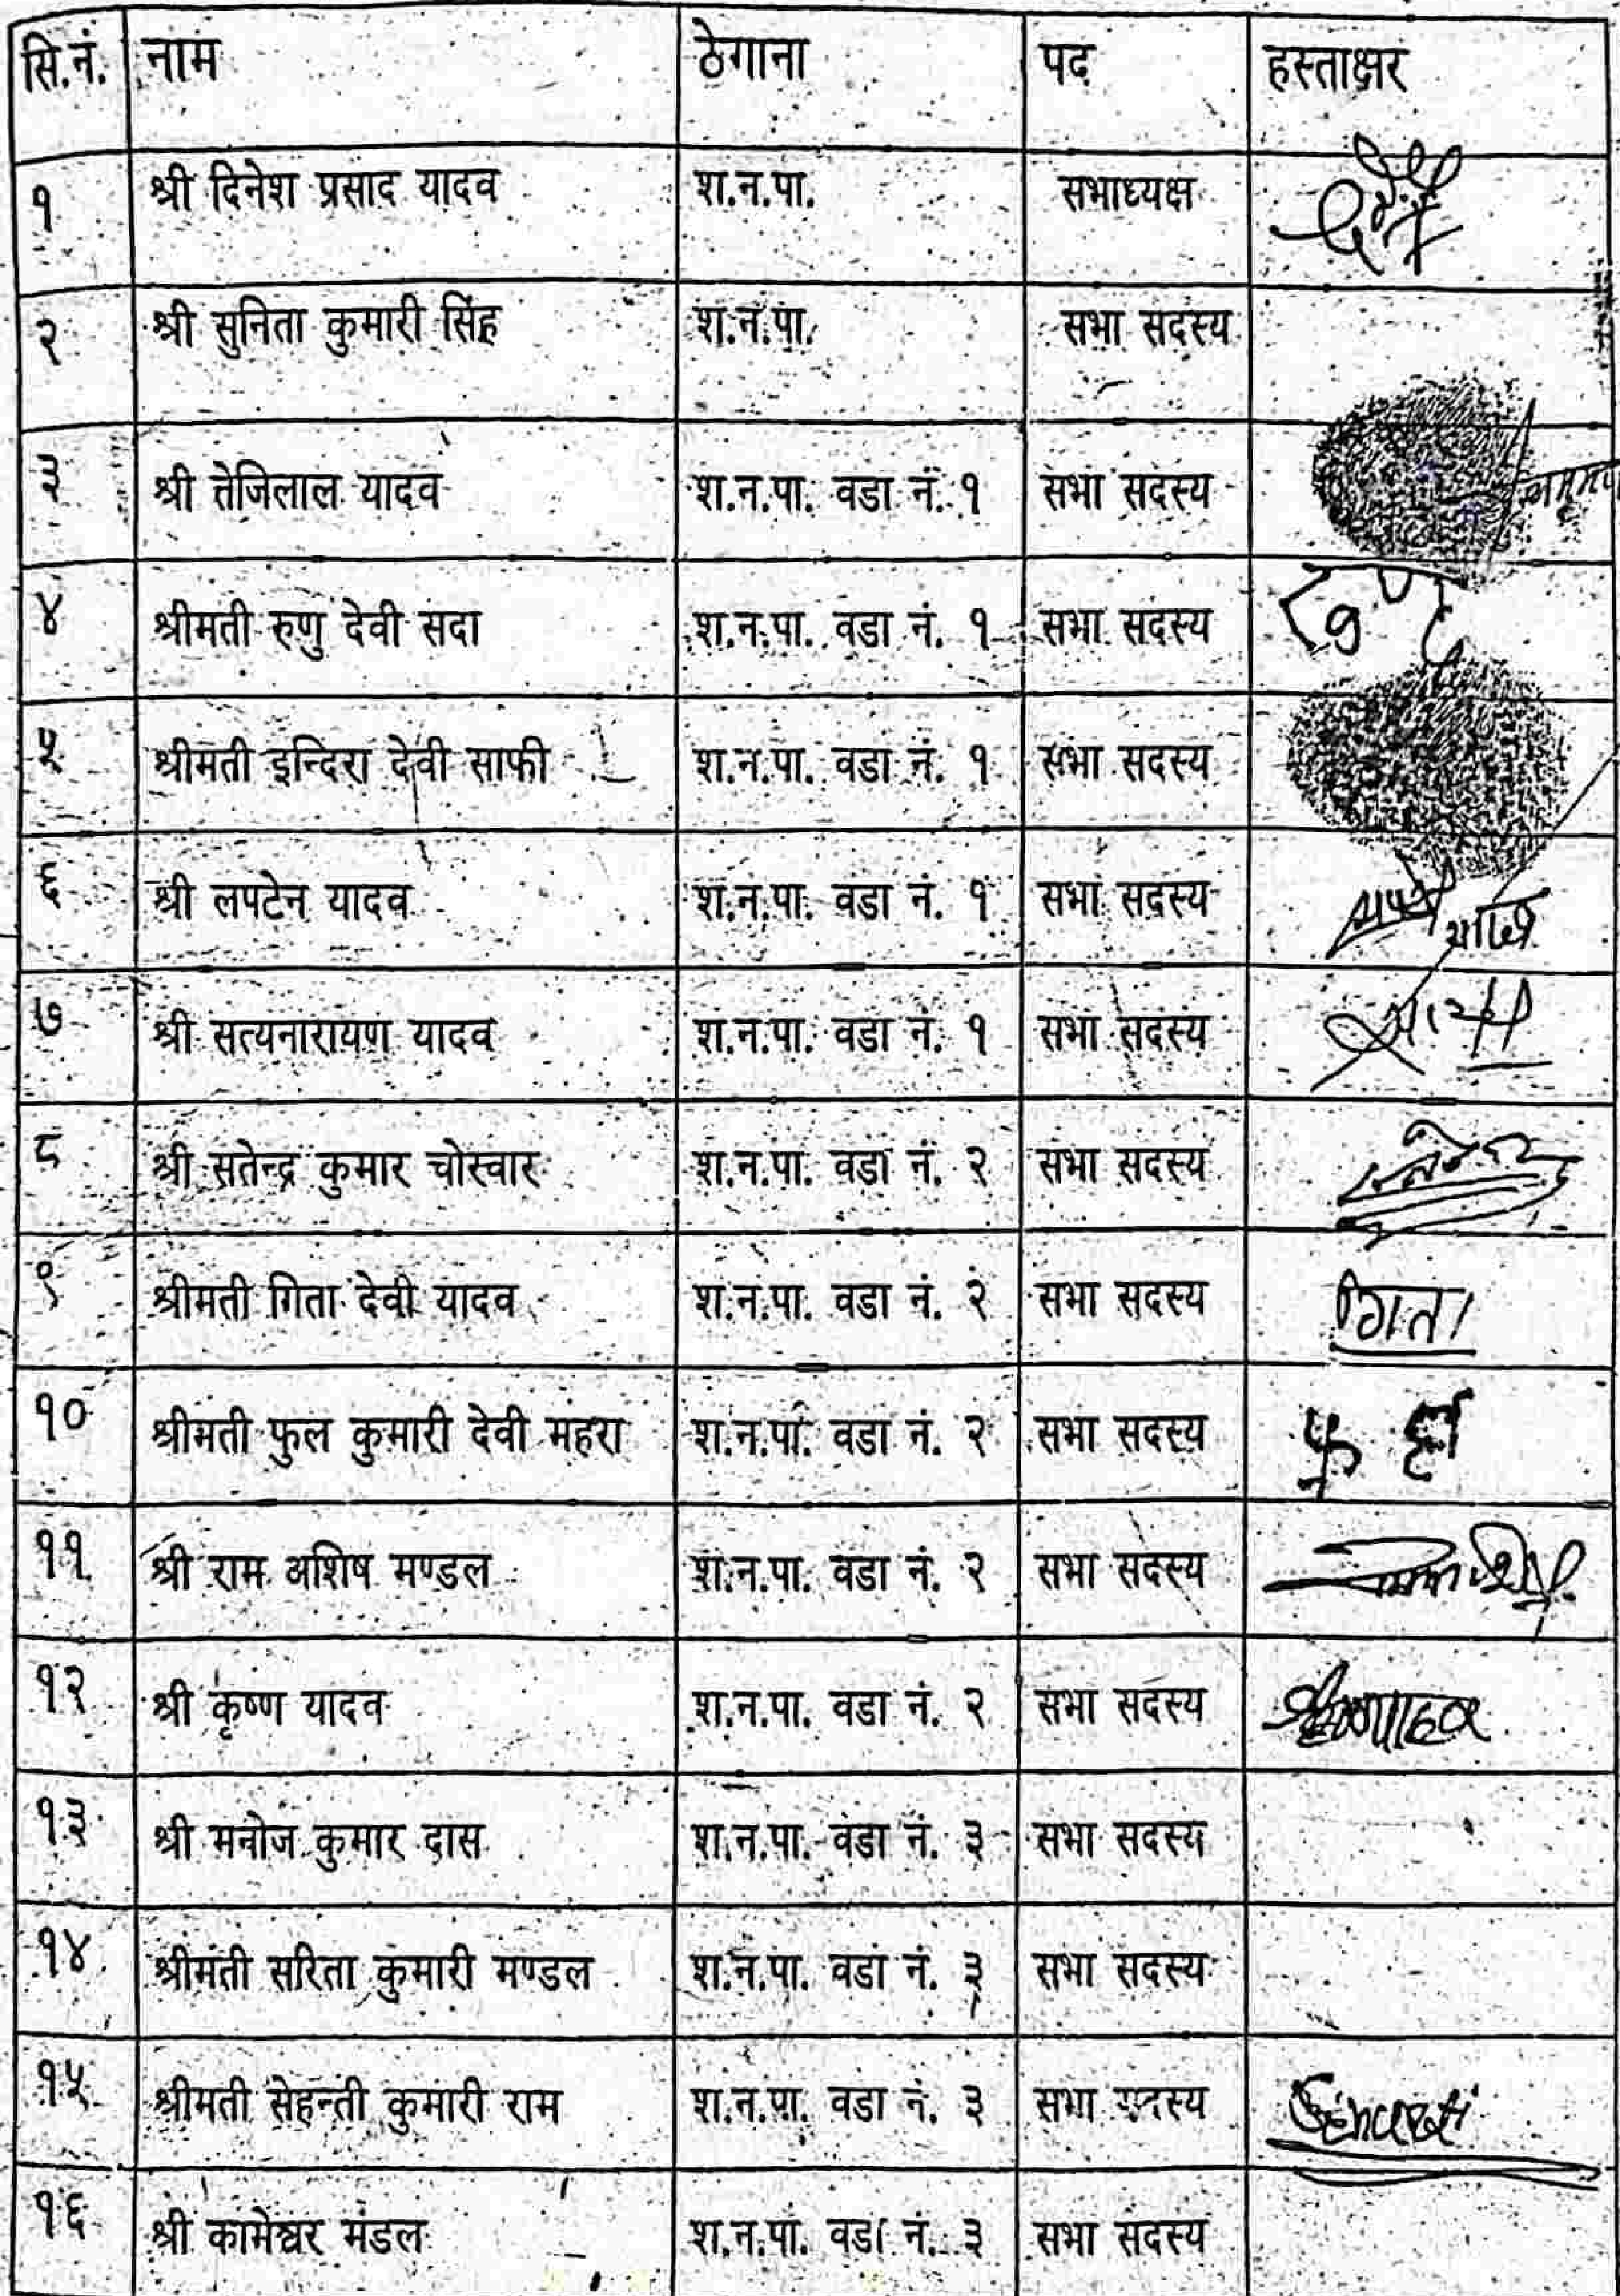 सि.नं. नाम ठेगाना पद हस्ताक्षर
१ श्री दिनेश प्रसाद यादव श.न.पा. सभाध्यक्ष
२ श्री सुनिता कुमारी सिंह श.न.पा. सभा सदस्य
३ श्री तेजिलाल यादव श.न.पा. वडा नं. १ सभा सदस्य
४ श्रीमती रुणु देवी सदा श.न.पा. वडा नं. १ सभा सदस्य
५ श्रीमती इन्दिरा देवी साफी श.न.पा. वडा नं. १ सभा सदस्य
६ श्री लपटेन यादव श.न.पा. वडा नं. १ सभा सदस्य
७ श्री सत्यनारायण यादव श.न.पा. वडा नं. १ सभा सदस्य
८ श्री सतेन्द्र कुमार चोस्वार श.न.पा. वडा नं. २ सभा सदस्य
९ श्रीमती गिता देवी यादव श.न.पा. वडा नं. २ सभा सदस्य गिता
१० श्रीमती फुल कुमारी देवी महरा श.न.पा. वडा नं. २ सभा सदस्य
११ श्री राम अशिष मण्डल श.न.पा. वडा नं. २ सभा सदस्य
१२ श्री कृष्ण यादव श.न.पा. वडा नं. २ सभा सदस्य
१३ श्री मनोज कुमार दास श.न.पा. वडा नं. ३ सभा सदस्य
१४ श्रीमती सरिता कुमारी मण्डल श.न.पा. वडा नं. ३ सभा सदस्य
१५ श्रीमती सेहन्ती कुमारी राम श.न.पा. वडा नं. ३ सभा सदस्य
१६ श्री कामेश्वर मंडल श.न.पा. वडा नं. ३ सभा सदस्य